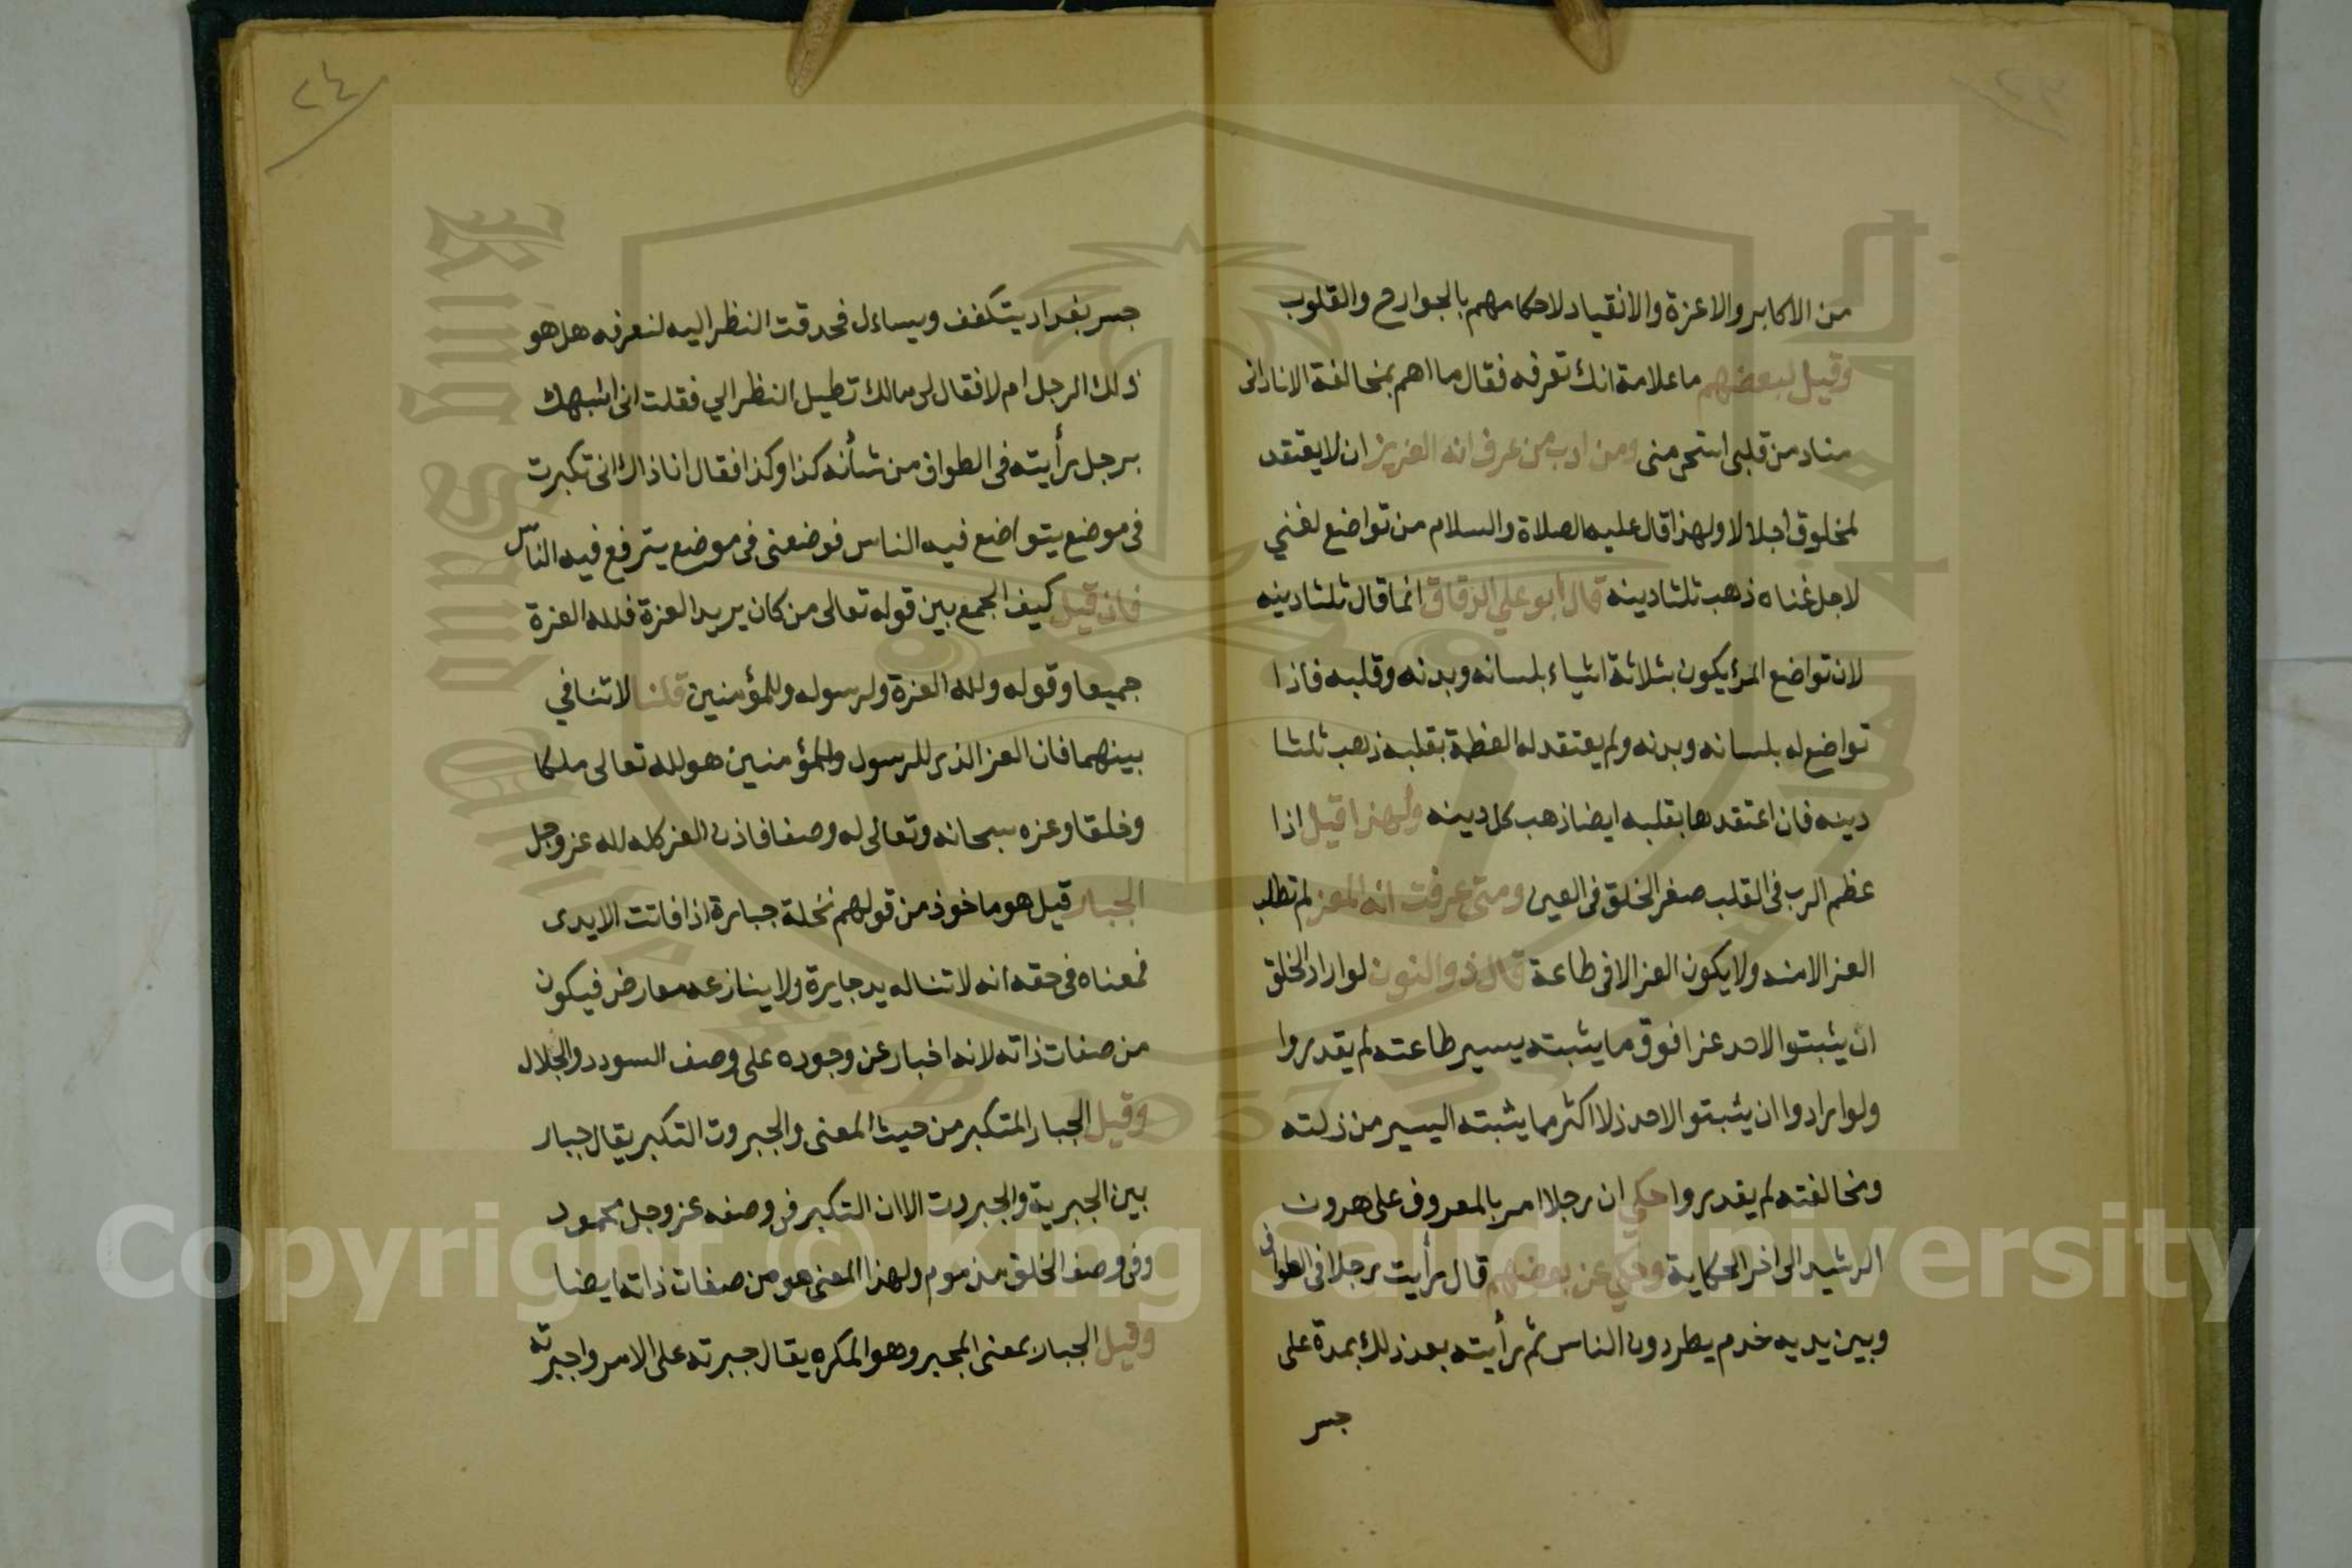 من الاكابر والاعزة والانقياد لاحكامهم بالجوارح والقلوب
وقيل لبعضهم ما علامة انك تعرفه فقال ما اهم بمخالفة الا نادانى
مناد من قلبى استحى منى ومن ادب من عرف انه العزيز ان لا يعتقد
لمخلوق اجلالا ولهذا قال عليه الصلاة والسلام من تواضع لغني
لاجل غناه ذهب ثلثا دينه قال ابو علي الدقاق انما قال ثلثا دينه
لان تواضع المرأ يكون بثلاثة اشياء بلسانه وبدنه وقلبه فاذا
تواضع له بلسانه وبدنه ولم يعتقد له العظمة بقلبه ذهب ثلثا
دينه فان اعتقدها بقلبه ايضا ذهب كل دينه ولهذا قيل اذا
عظم الرب فى القلب صغر الخلق فى العين ومتى عرفت انه المعز لم تطلب
العز الا منه ولا يكون العز الا فى طاعة قال ذو النون لو اراد الخلق
ان يثبتوا لاحد عزا فوق ما يثبته يسير طاعته لم يقدروا
ولو ارادوا ان يثبتوا لاحد ذلا اكثر مما يثبته اليسير من ذلته
ومخالفته لم يقدروا حكي ان رجلا امر بالمعروف على هرون
الرشيد الى اخر الحكاية وحكي عن بعضهم قال رأيت رجلا فى الطواف
وبين يديه خدم يطردون الناس ثم رأيته بعد ذلك بمدة على
جسر
٢٤
جسر بغداد يتكفف ويساءل فحدقت النظر اليه لنعرفه هل هو
ذلك الرجل ام لا فقال لى مالك تطيل النظر الي فقلت انى اشبهك
برجل رأيته فى الطواف من شأنه كذا وكذا فقال انا ذاك انى تكبرت
فى موضع يتواضع فيه الناس فوضعنى فى موضع يترفع فيه الناس
فان قيل كيف الجمع بين قوله تعالى من كان يريد العزة فلله العزة
جميعا وقوله ولله العزة ولرسوله وللمؤمنين قلنا لا تنافي
بينهما فان العز الذى للرسول والمؤمنين هو لله تعالى ملكا
وخلقا وعزه سبحانه وتعالى له وصفا فاذن العز كله لله عز وجل
الجبار قيل هو ماخوذ من قولهم نخلة جبارة اذا فاتت الايدى
فمعناه فى حقه انه لا تناله يد جايرة ولا ينازعه معارض فيكون
من صفات ذاته لانه اخبار عن وجوده على وصف السودد والجلال
وقيل الجبار المتكبر من حيث المعنى والجبروت التكبر يقال جبار
بين الجبرية والجبروت الا ان التكبر فى وصفه عز وجل محمود
وفى وصف الخلق مذموم ولهذا المعنى هو من صفات ذاته ايضا
وقيل الجبار بمعنى المجبر وهو المكره يقال جبرته على الامر واجبرته
Copyright © King Saud University